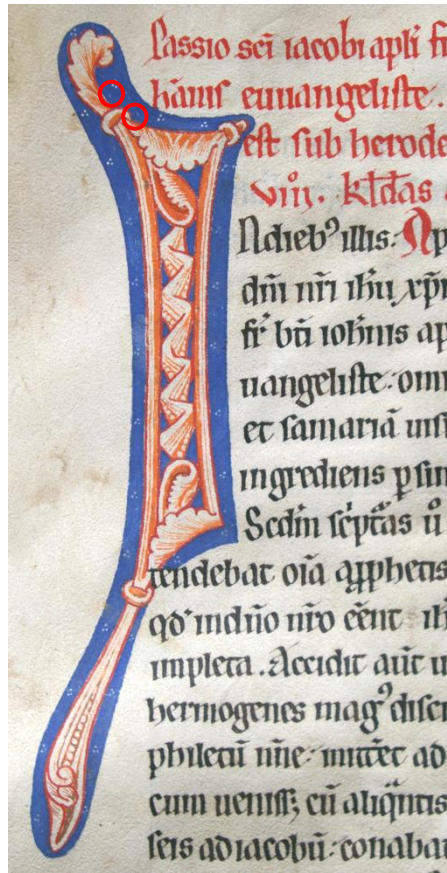 Passio sc̄i iacobi apl̄i fr̄
euuangeliste.
est sub herode
viij. kl̄das
Ndieb⁹ illis. Ap
dn̄i nr̄i ihū xp̄i
fr̄ bt̄i ioh̄nis ap
uangeliste. om
et samariā
ingrediens p sin
Scdm̄ sc̄ptas
tendebat oīa
qd̓ indn̄o nr̄o ēēnt ih
impleta. Accidit aūt u
hermogenes mag⁹ disci
philetū nn̄e. mitt̄et ad
cum uenisset cū aliq̄ntis
seis ad iacobū. conaba